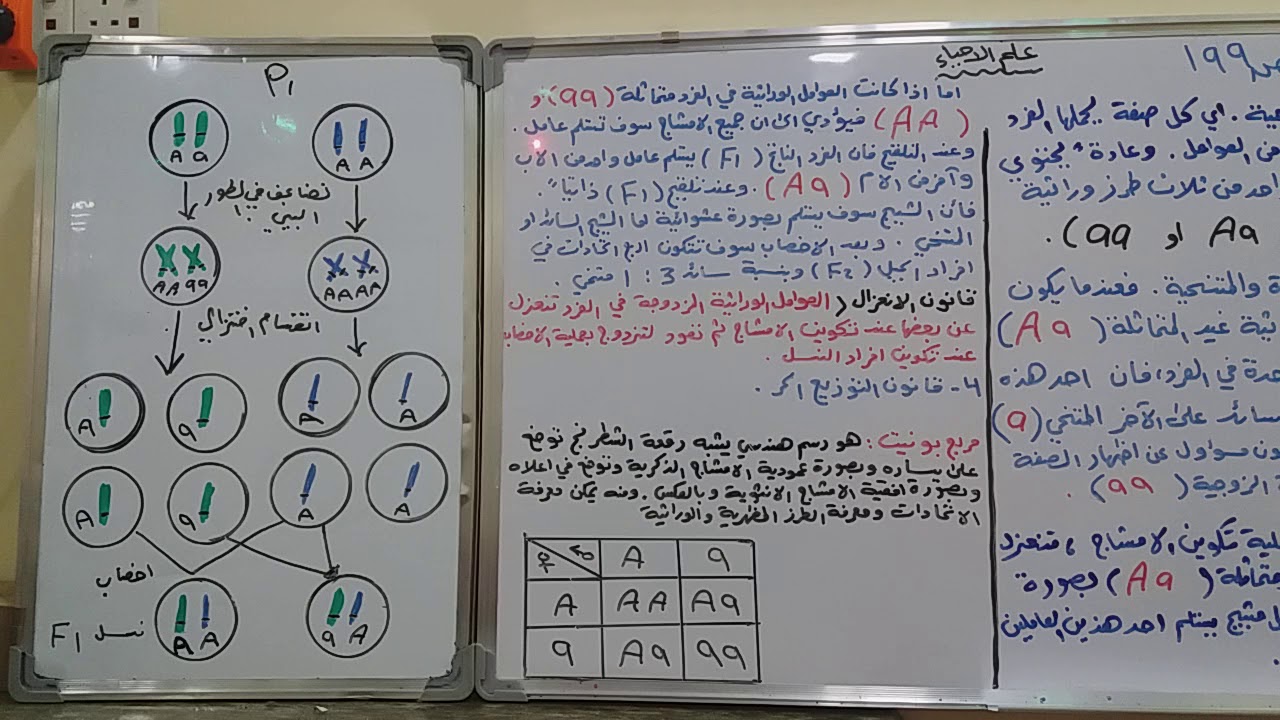 علم الاحياء
ص 199
P1
A a
A A
تضاعف في الطور
البيني
AA aa
AA AA
انقسام اختزالي
A
a
A
A
A
a
A
A
اخصاب
نسل F1
A A
a A
اما اذا كانت العوامل الوراثية في الفرد متماثلة (aa) و
(AA) فيؤدي الى ان جميع الامشاج سوف تستلم عامل .
وعند التلقيح فان الفرد الناتج (F1) يستلم عامل واحد من الاب
وآخر من الام (Aa) . وعند تلقيح (F1) ذاتياً .
فأن المشيج سوف يستلم بصورة عشوائية اما المشيج السائد او
المتنحي . وبعد الاخصاب سوف تتكون اربع اتحادات في
افراد الجيل (F2) وبنسبة سائد 3 : 1 متنحي .
قانون الانعزال ( العوامل الوراثية المزدوجة في الفرد تنعزل
عن بعضها عند تكوين الامشاج ثم تعود لتزدوج بعملية الاخصاب
عند تكوين افراد النسل .
4- قانون التوزيع الحر .
مربع بونيت : هو رسم هندسي يشبه رقعة الشطرنج توضع
على يساره وبصورة عمودية الامشاج الذكرية وتوضع في اعلاه
وبصورة افقية الامشاج الانثوية وبالعكس . ومنه يمكن معرفة
الاتحادات ومعرفة الطرز المظهرية والوراثية
♀ ♂ A a
A AA Aa
a Aa aa
. اي كل صفة يحملها الفرد
من العوامل . وعادة يحتوي
احد من ثلاث طرز وراثية
Aa او aa) .
ة والمتنحية . فعندما يكون
اثية غير المتماثلة (Aa)
حدة في الفرد، فان احد هذه
سائد على الآخر المتنحي (a)
ون مسؤول عن اظهار الصفة
ة الزوجية (aa) .
لية تكوين الامشاج ، فتنعزل
متماثلة (Aa) بصورة
ل مشيج يستلم احد هذين العاملين